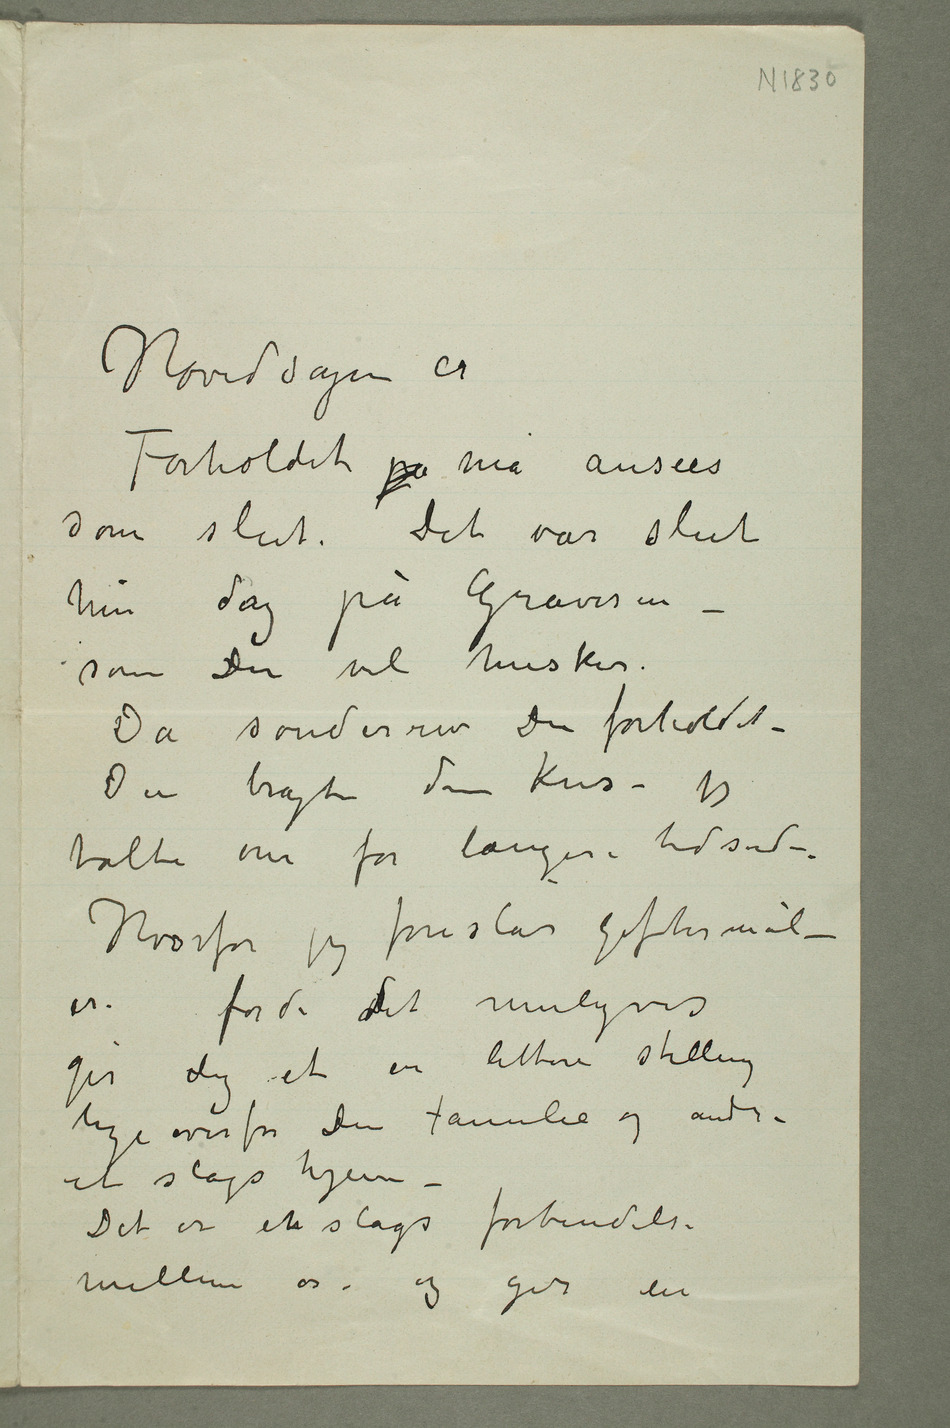 N1830
Hovedsagen er
Forholdet på må ansees
som slut. Det var slut
hin dag på Gravesen –
som Du vel husker.
Da sønderrev Du forholdet –
Du bragte den Kris – jeg
talte om for længere tid siden.
Hvorfor jeg foreslår giftermål –
er fordi det muligvis
gir dig et en lettere stilling
lige overfor Din Familie og andre
et slags hjem –
Det er en slags forbindelse
mellem os – og gir en